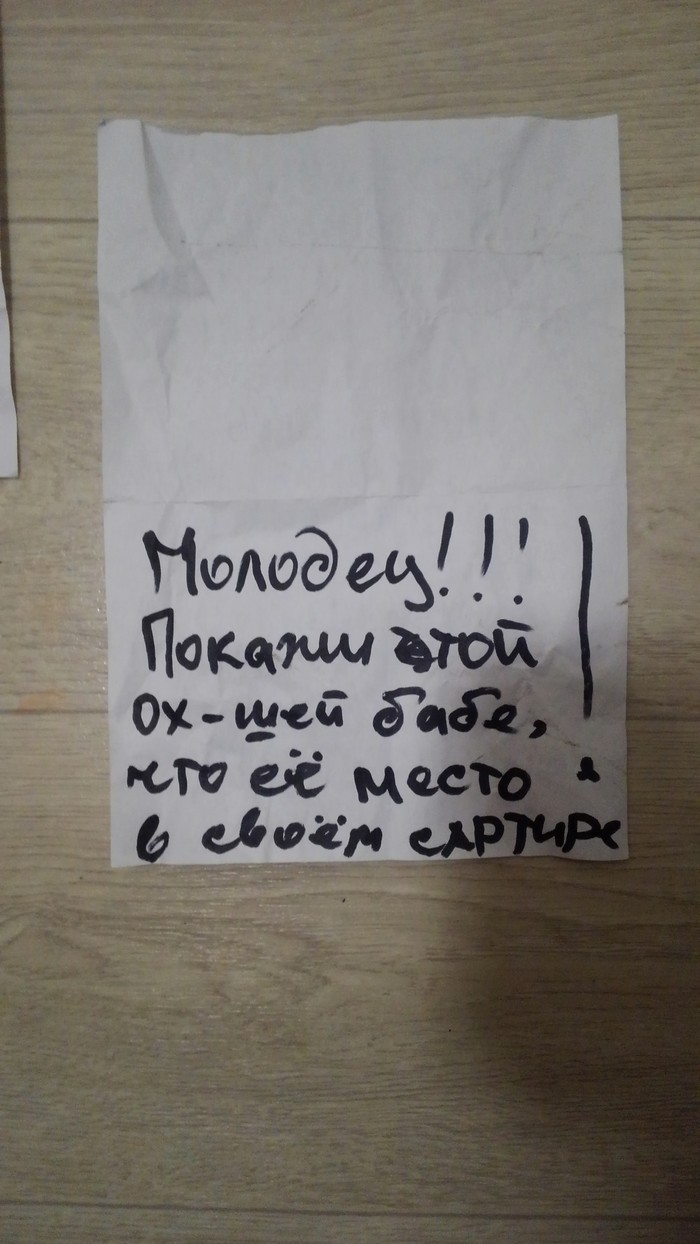 Молодец!!!
Покажи этой
ох-шей бабе,
что её место
в своём сартире!